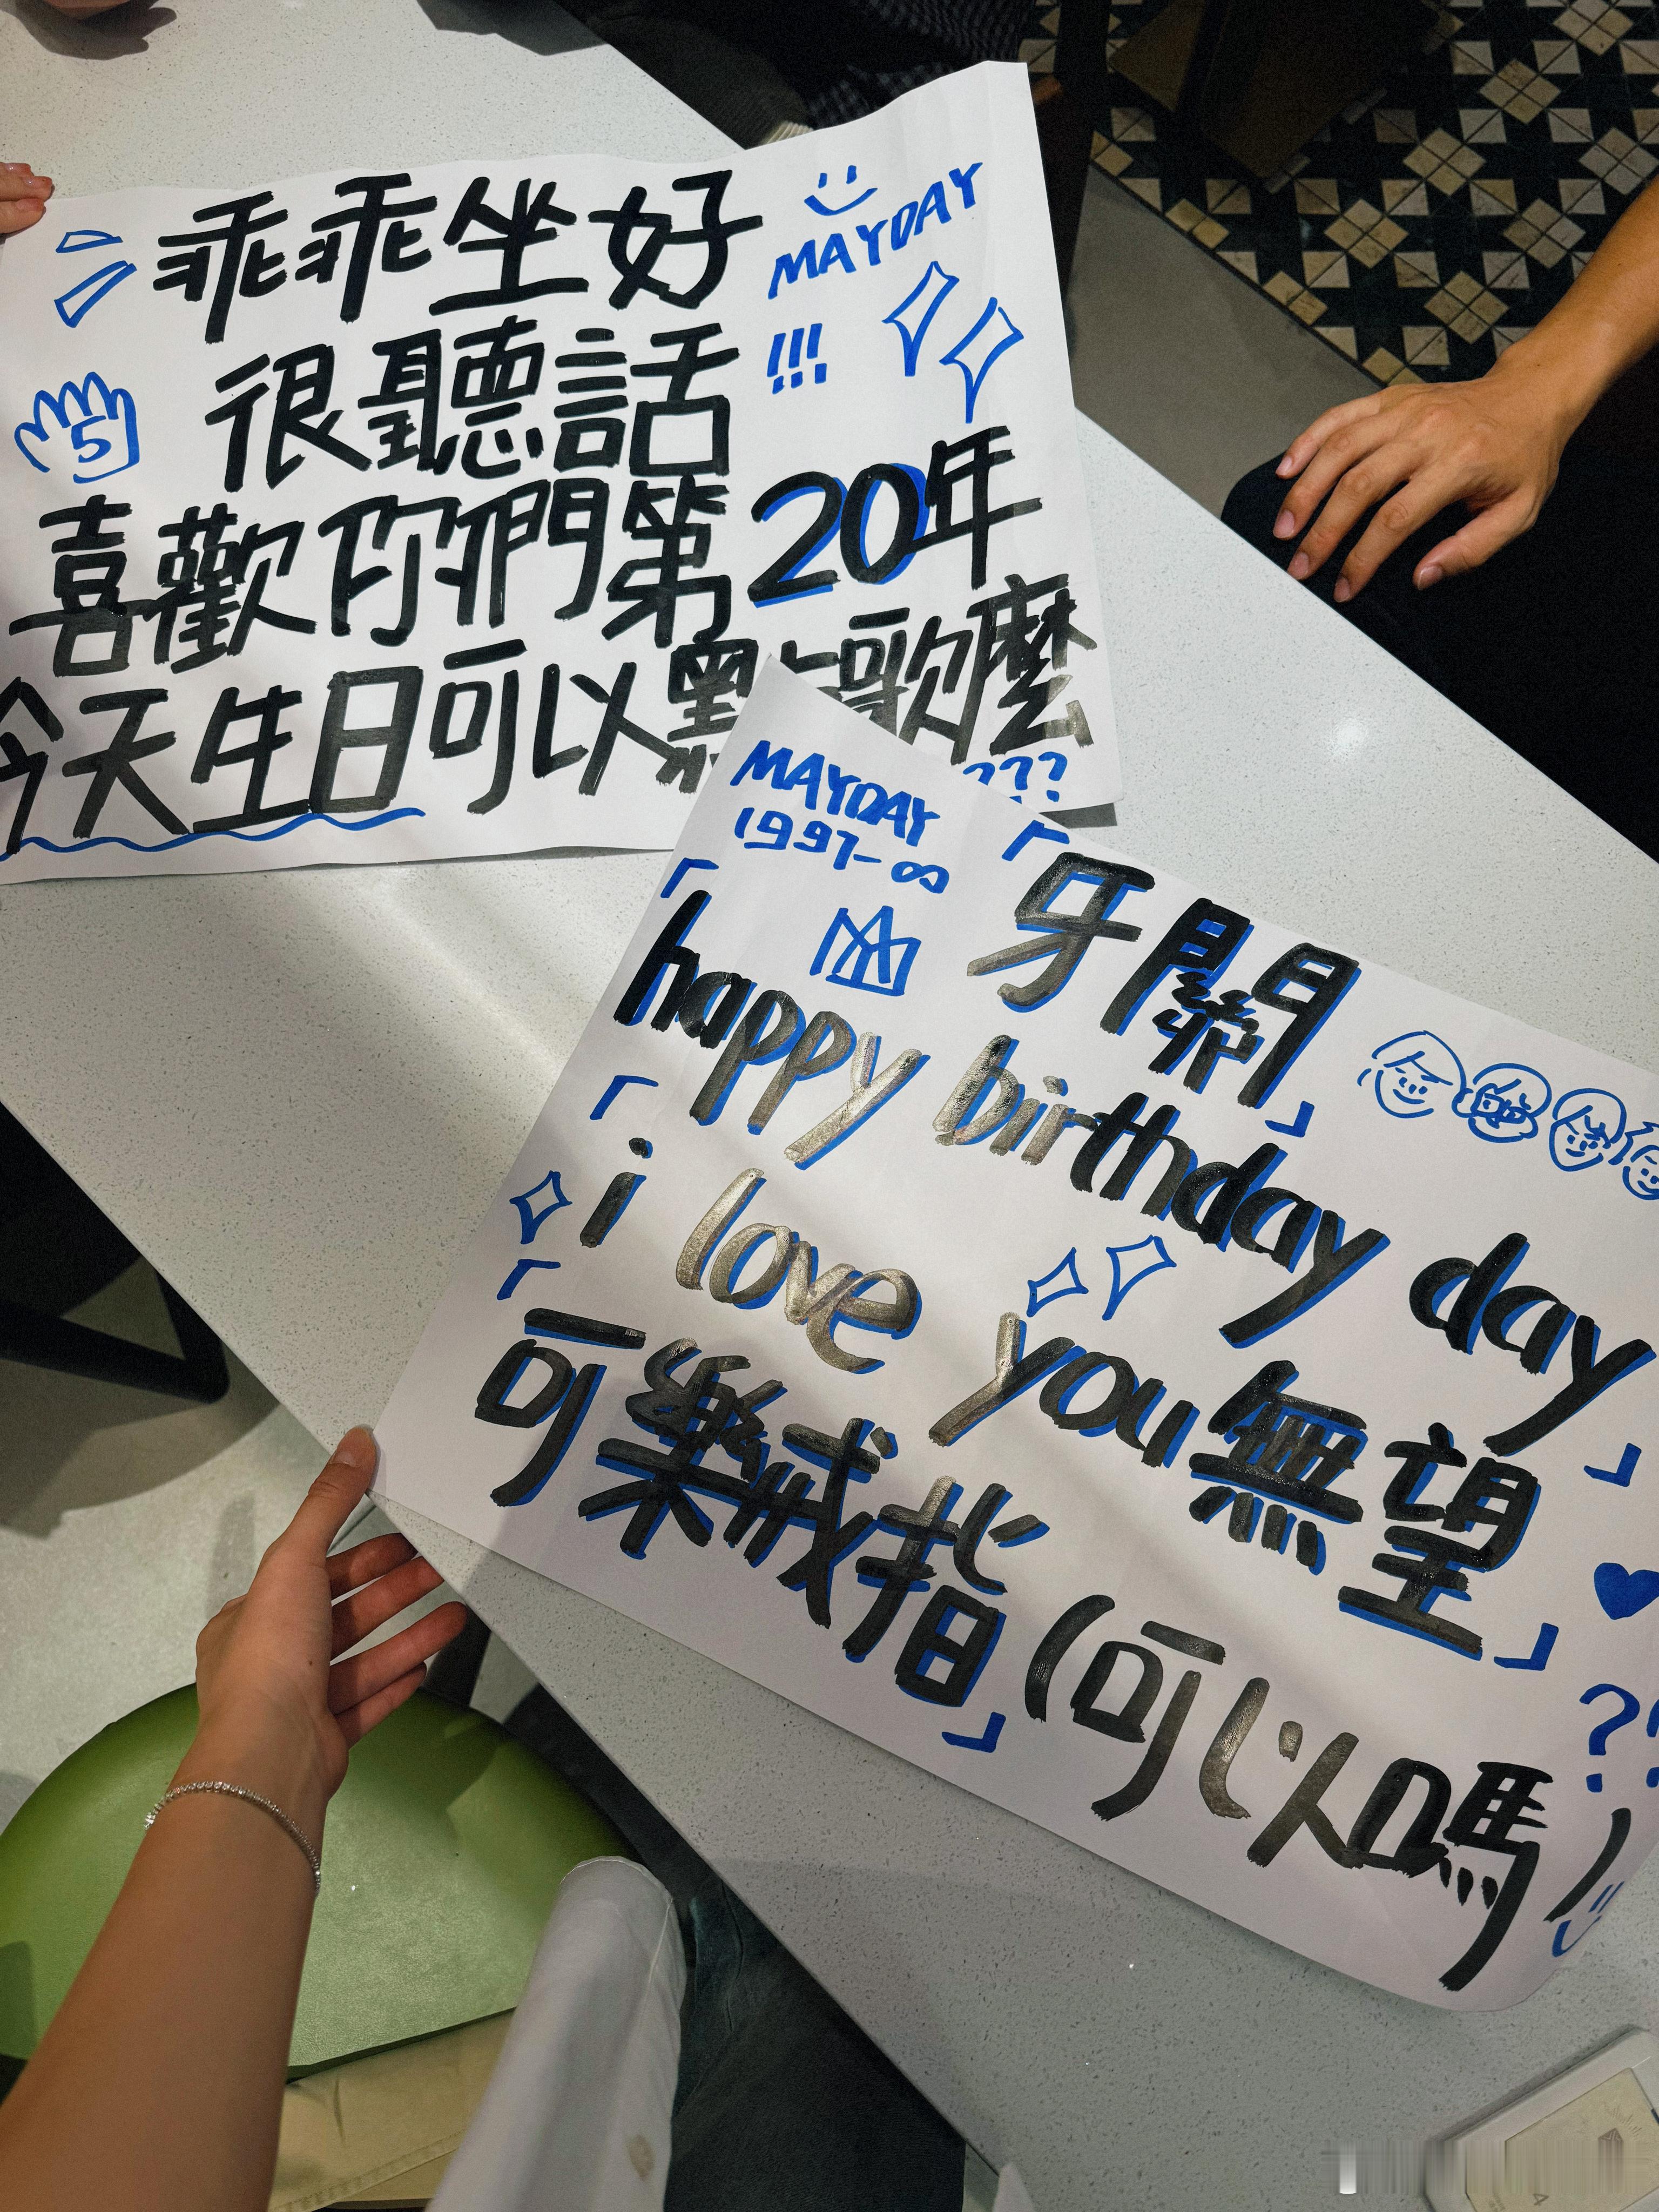 乖乖坐好
MAYDAY
很聽話
!!!
5
喜歡你們第20年
今天生日可以點歌麼
???
MAYDAY
1997-∞
「牙關」
「happy birthday day」
「i love you無望」
「可樂戒指」(可以嗎)
?!